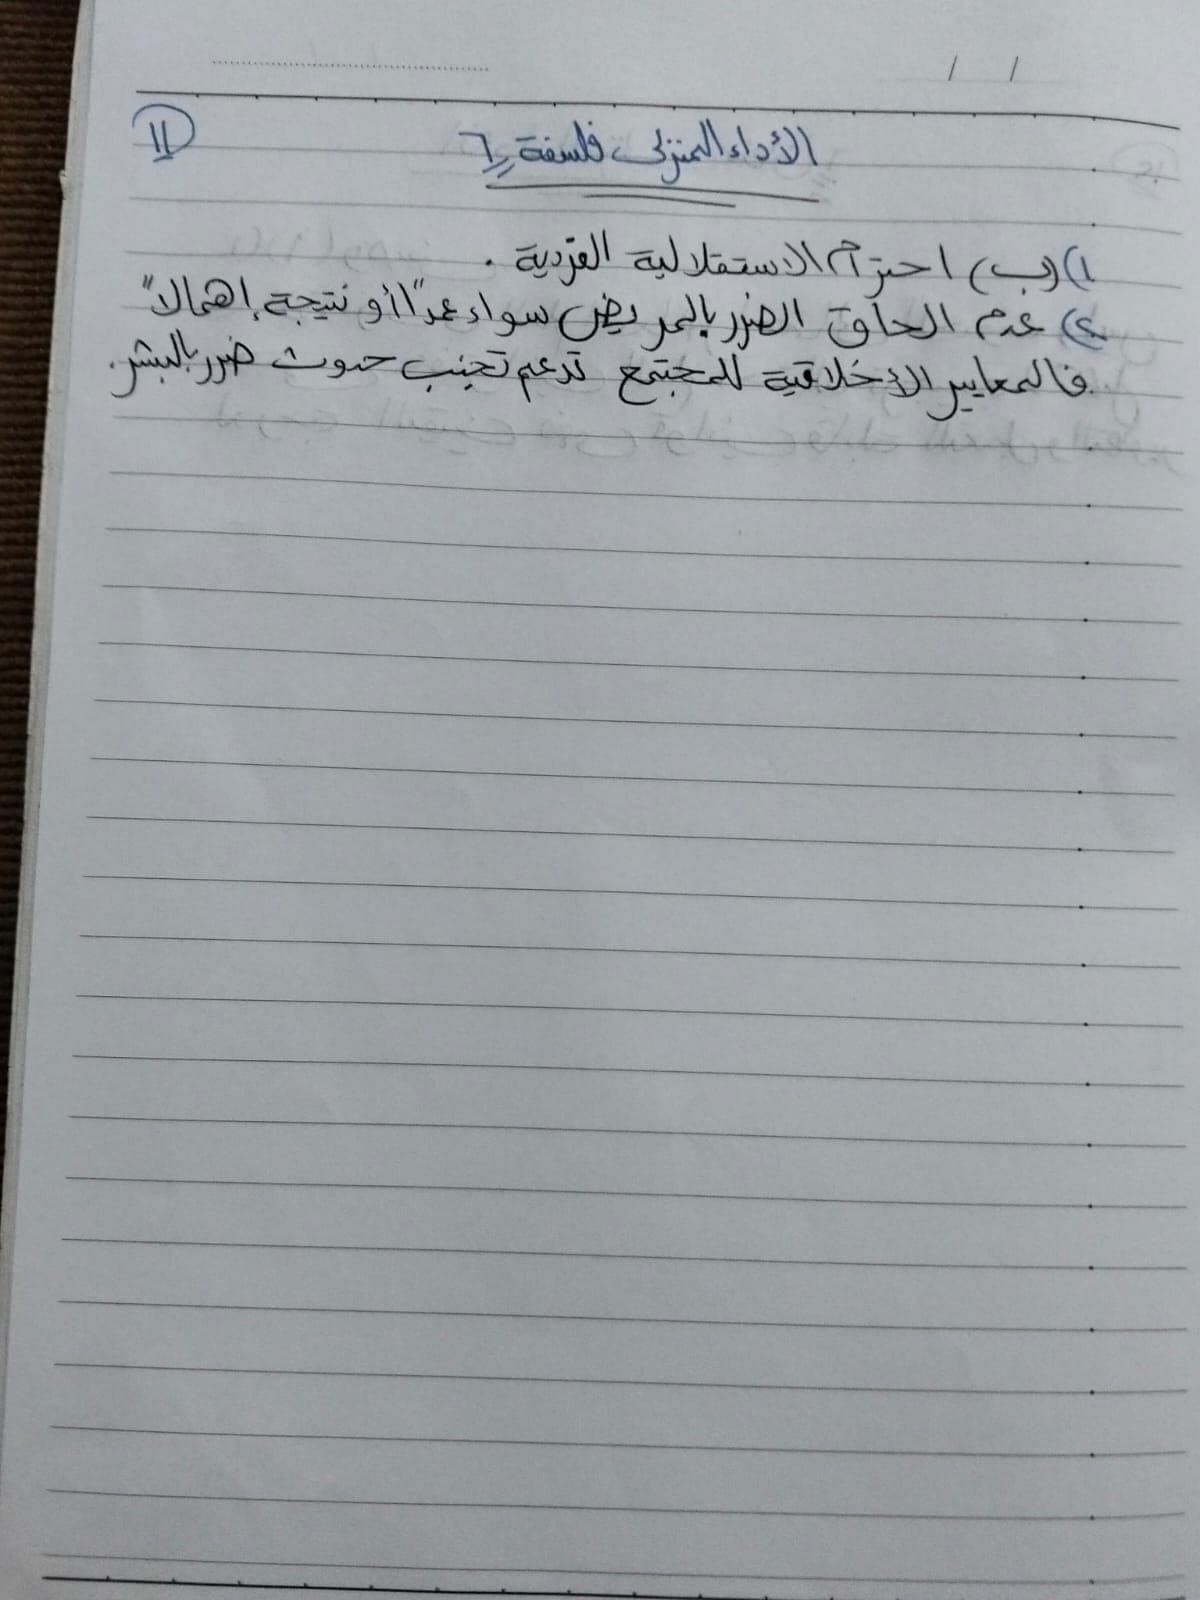 / /
الأداء المنزلى فلسفة ٦
11
١) (ب) احترام الاستقلالية الفردية .
٢) عدم الحاق الضرر بالمريض سواء عمداً أو نتيجة إهمالاً
فالمعايير الأخلاقية للمجتمع تدعم تجنب حدوث ضرر بالبشر.